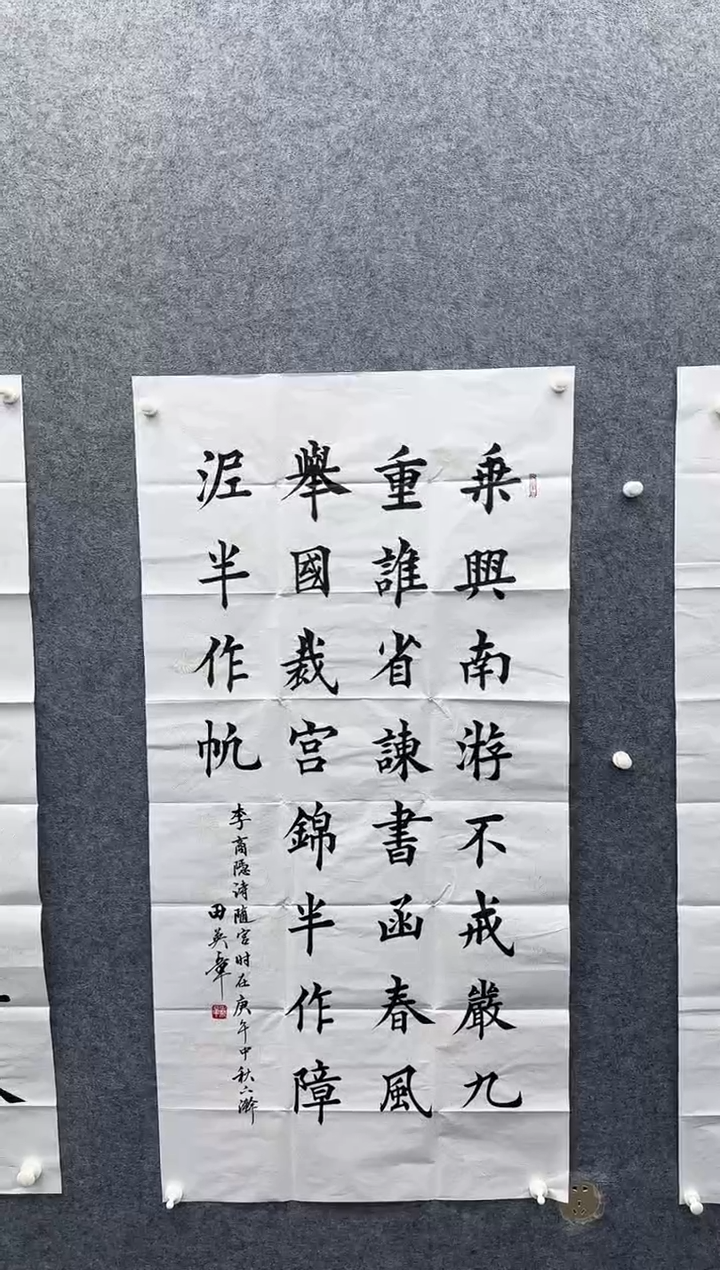 乗興南游不戒嚴九
重誰省諫書函春風
舉國裁宮錦半作障
泥半作帆
李商隐诗随宫时在庚午中秋
田英章